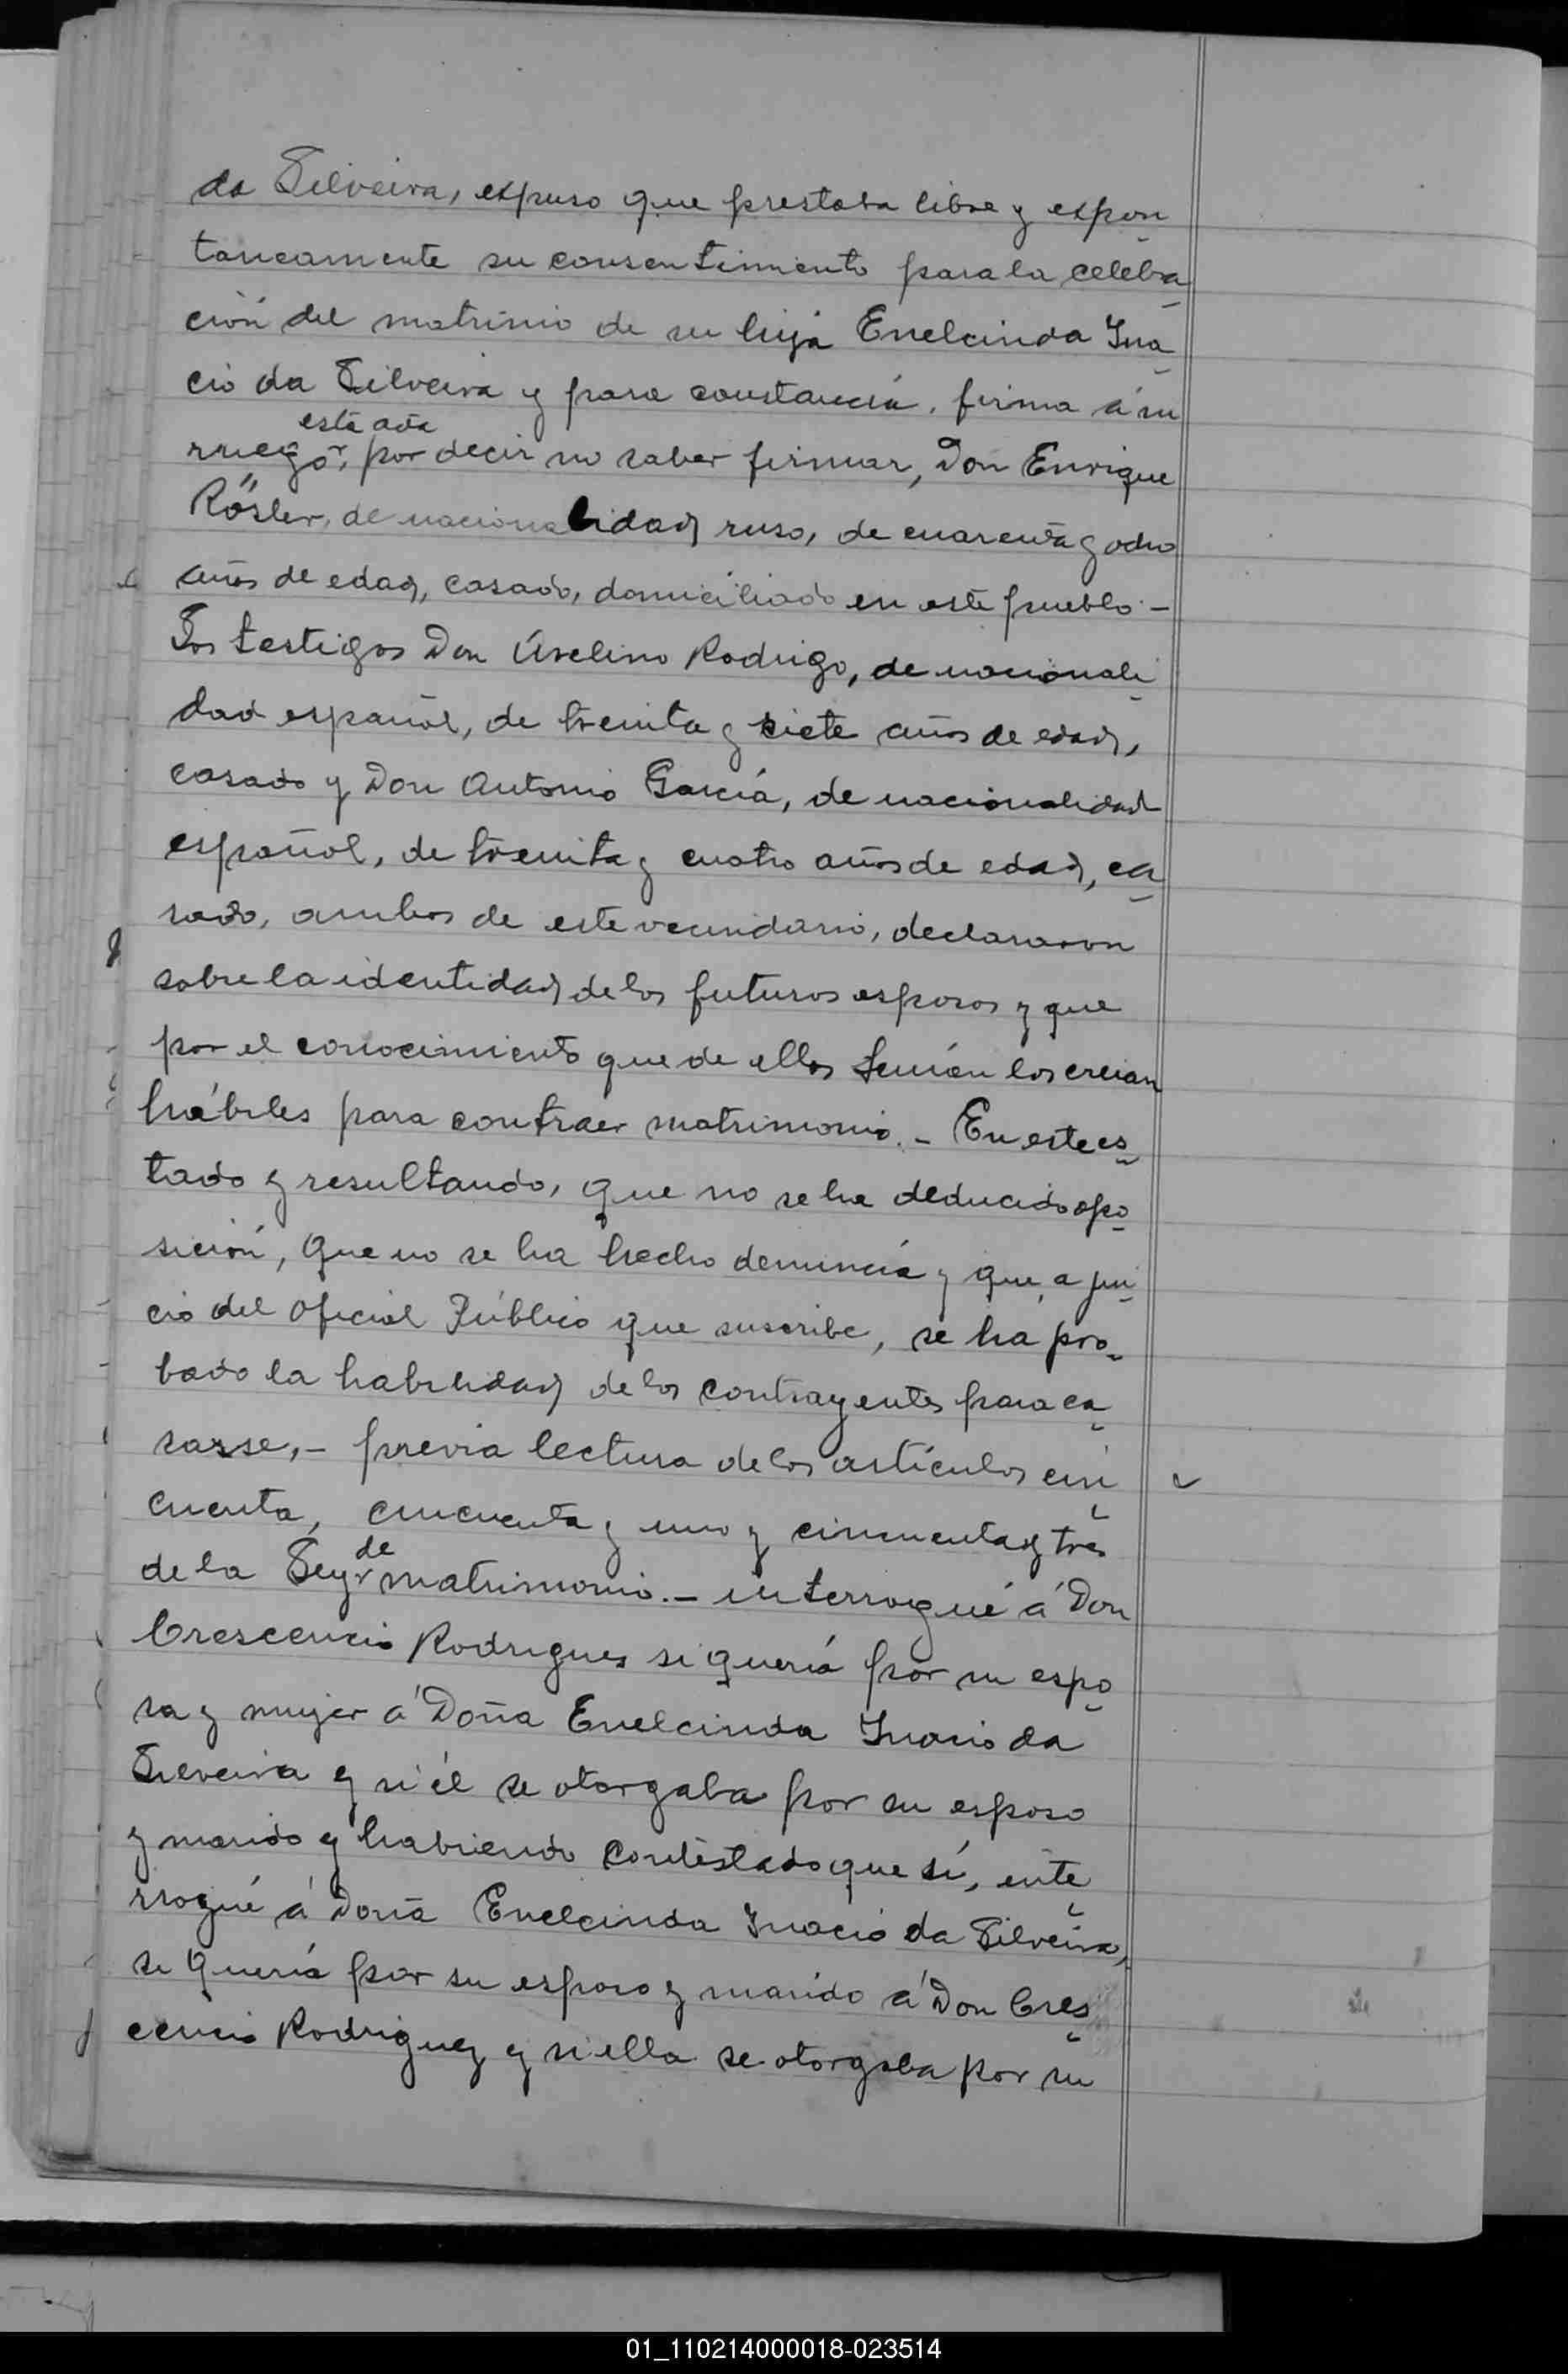 da Silveira, expuso que prestaba libre y espon
taneamente su consentimiento para la celebra
ción del matrimio de su hija Enelcinda Ina
cio da Silveira y para constancia, firma á su
esta acta
ruego, por decir no saber firmar, Don Enrique
Rösler, de nacionalidad ruso, de cuarenta y ocho
años de edad, casado, domiciliado en este pueblo -
Los testigos Don Avelino Rodrigo, de nacionali
dad español, de treinta y siete años de edad,
casado y Don Antonio García, de nacionalidad
español, de treinta y cuatro años de edad, ca
sado, ambos de este vecindario, declararon
sobre la identidad de los futuros esposos y que
por el conocimiento que de ellos tenían los creían
hábiles para contraer matrimonio. - En este es
tado y resultando, que no se ha deducido opo
sición, que no se ha hecho denuncia y que, a jui
cio del Oficial Público que suscribe, se ha pro
bado la habilidad de los contrayentes para ca
sarse, - previa lectura de los artículos cin
cuenta, cincuenta y uno y cincuenta y tres
de
de la Ley matrimonio. - interrogué á Don
Crescencio Rodrigues si quería por su espo
sa y mujer á Doña Enelcinda Inacio da
Silveira y si él se otorgaba por su esposo
y marido y habiendo contestado que sí, inte
rrogué á Doña Enelcinda Inacio da Silveira,
si quería por su esposo y marido á Don Cres
cencio Rodriguez y si ella se otorgaba por su
01_110214000018-023514